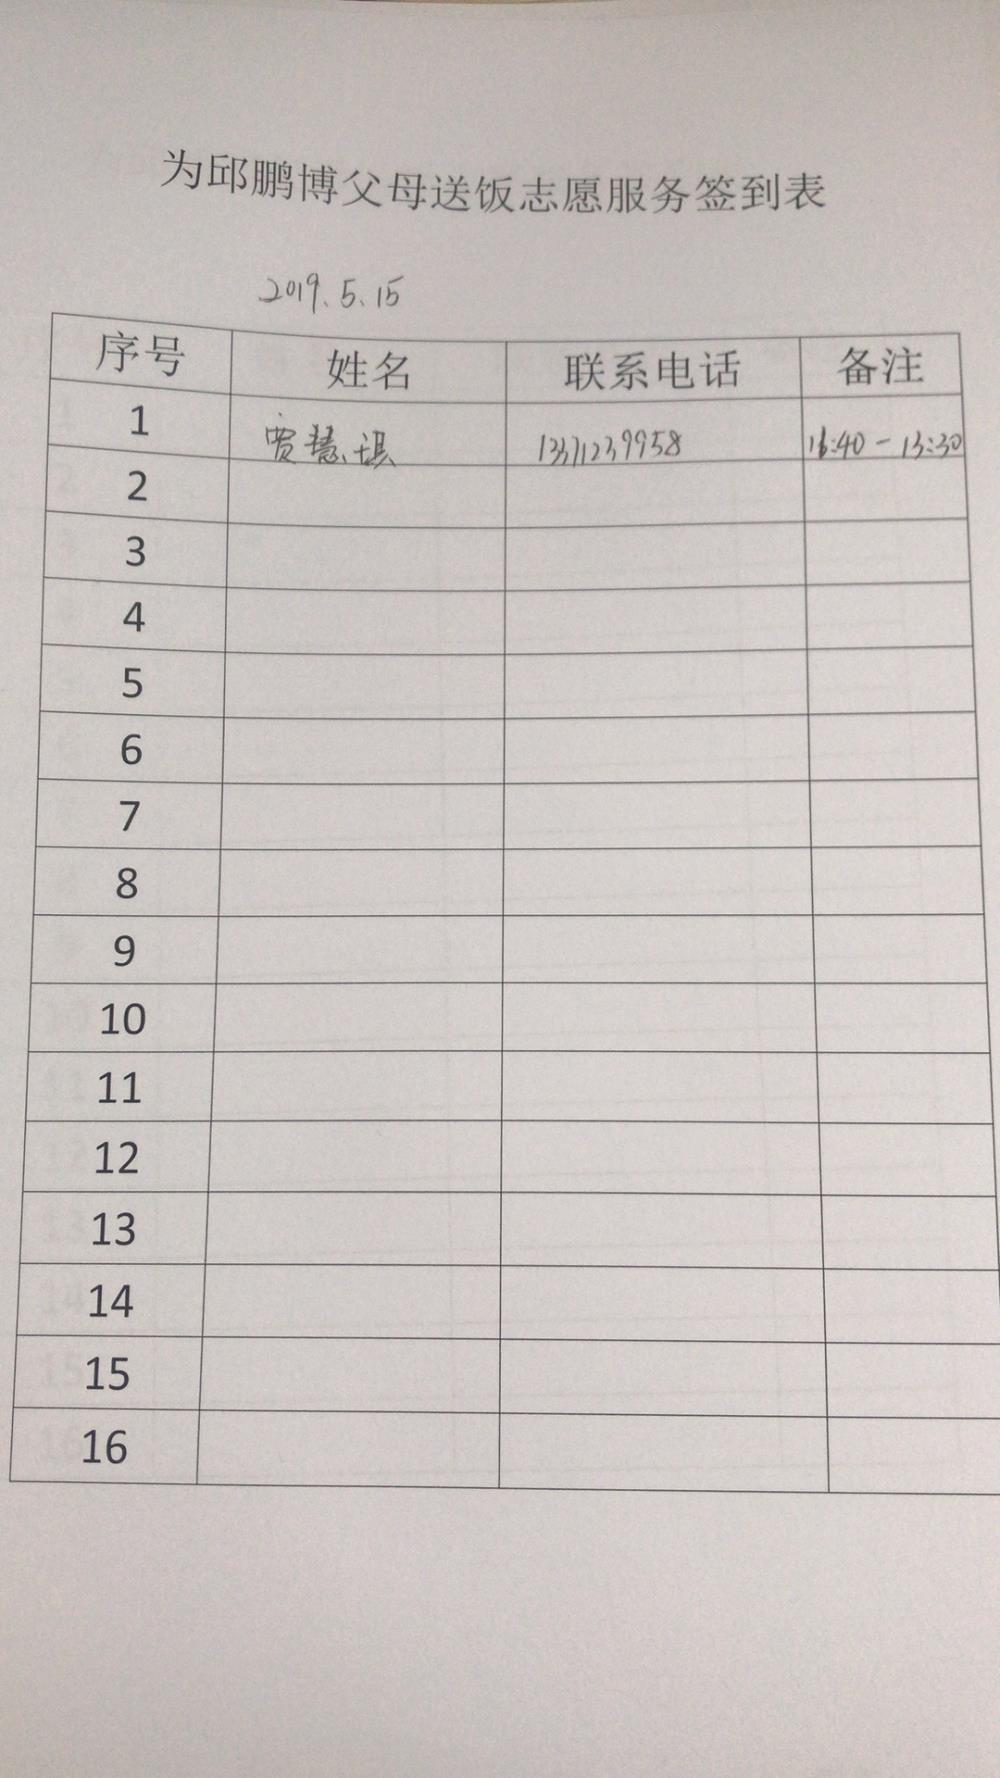 为邱鹏博父母送饭志愿服务签到表
2019.5.15
序号 姓名 联系电话 备注
1 贾慧琪 13371239958 16:40-13:30
2
3
4
5
6
7
8
9
10
11
12
13
14
15
16